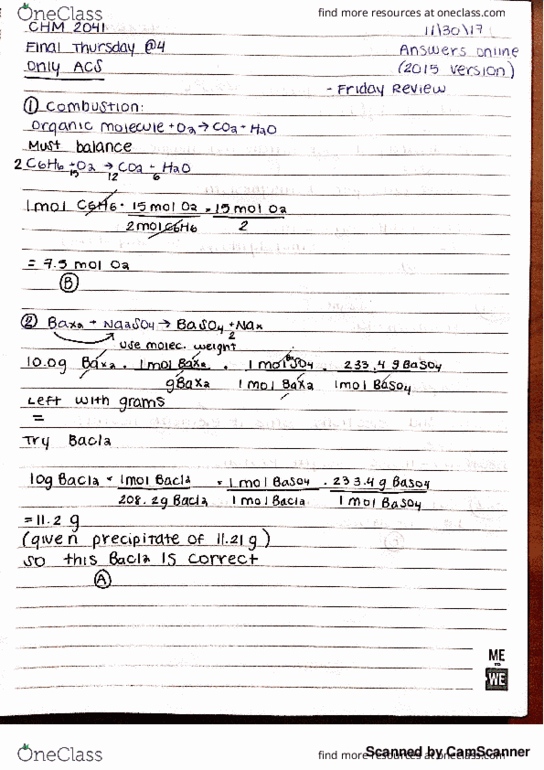 OneClass
find more resources at oneclass.com
CHM 2041
11/30/17
Final Thursday @4
Answers online
only ACS
(2015 version)
- Friday Review
① Combustion:
organic molecule + O2 → CO2 + H2O
Must balance
2 C6H6 + O2 → CO2 + H2O
15 12 6
1 mol C6H6 · 15 mol O2 = 15 mol O2
2 mol C6H6 2
= 7.5 mol O2
Ⓑ
② BaX2 + Na2SO4 → BaSO4 + NaX
2
use molec. weight
10.0g BaX2 · 1mol BaX2 · 1 mol SO4 · 233.4 g BaSO4
gBaX2 1 mol BaX2 1mol BaSO4
Left with grams
=
Try BaCl2
10g BaCl2 · 1mol BaCl2 · 1 mol BaSO4 · 233.4 g BaSO4
208.2g BaCl2 1 mol BaCl2 1 mol BaSO4
= 11.2 g
(given precipitate of 11.21 g)
so this BaCl2 IS correct
Ⓐ
ME
TO
WE
OneClass
find more resources at oneclass.com
Scanned by CamScanner